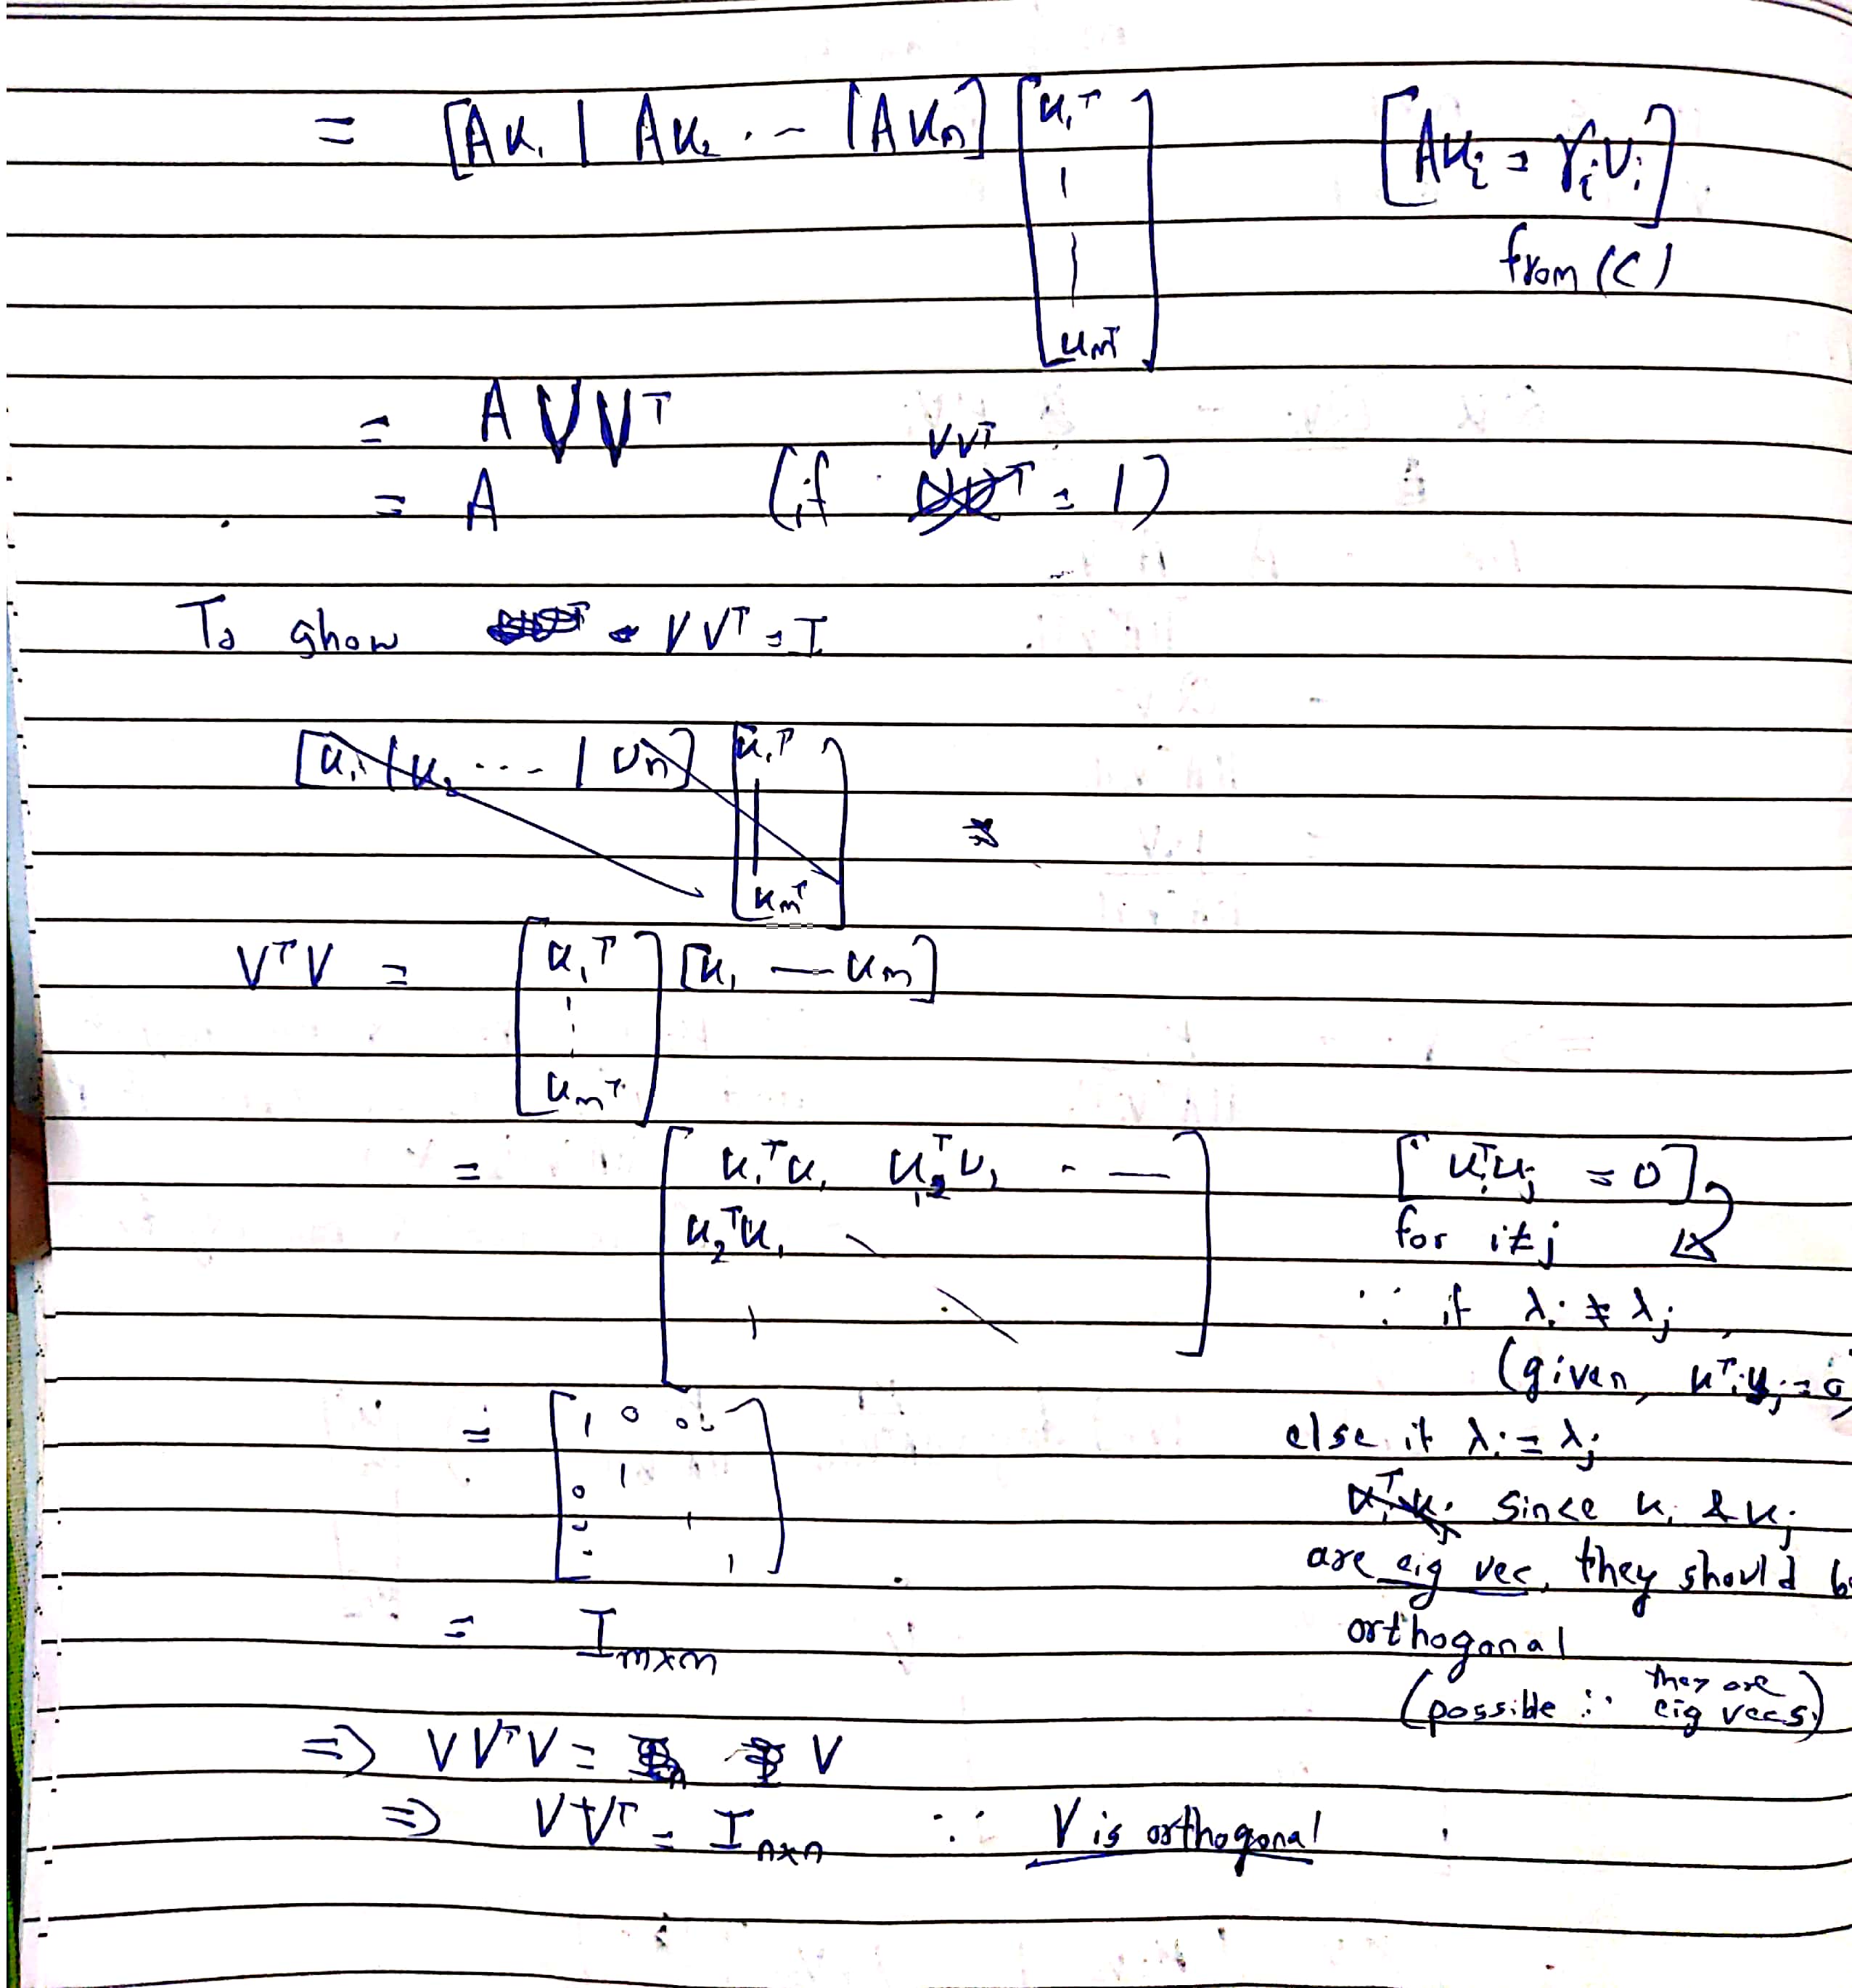 = [Au₁ | Au₂ . - - | Auₘ] [u₁ᵀ | | uₘᵀ] [Auᵢ = γᵢvᵢ]
from (c)
= A V Vᵀ
VVᵀ
= A (if = 1)
To show VVᵀ = I
[u₁ | u₂ ... | uₙ] [u₁ᵀ | uₘᵀ]
VᵀV = [u₁ᵀ ⋮ uₘᵀ] [u₁ — uₘ]
= [u₁ᵀu₁ u₁ᵀu₂ - — [uᵢᵀuⱼ = 0]
u₂ᵀu₁ \ for i≠j
| \ ] ∵ if λᵢ ≠ λⱼ
(given, uᵀᵢuⱼ = 0)
= [1 0 0.. else if λᵢ = λⱼ
0 1
- 1 since uᵢ & uⱼ
- 1] are eig vec, they should be
= Iₘₓₘ orthogonal
(possible ∵ they are eig vecs)
⇒ VVᵀV = V
⇒ VVᵀ = Iₙₓₙ ∵ V is orthogonal